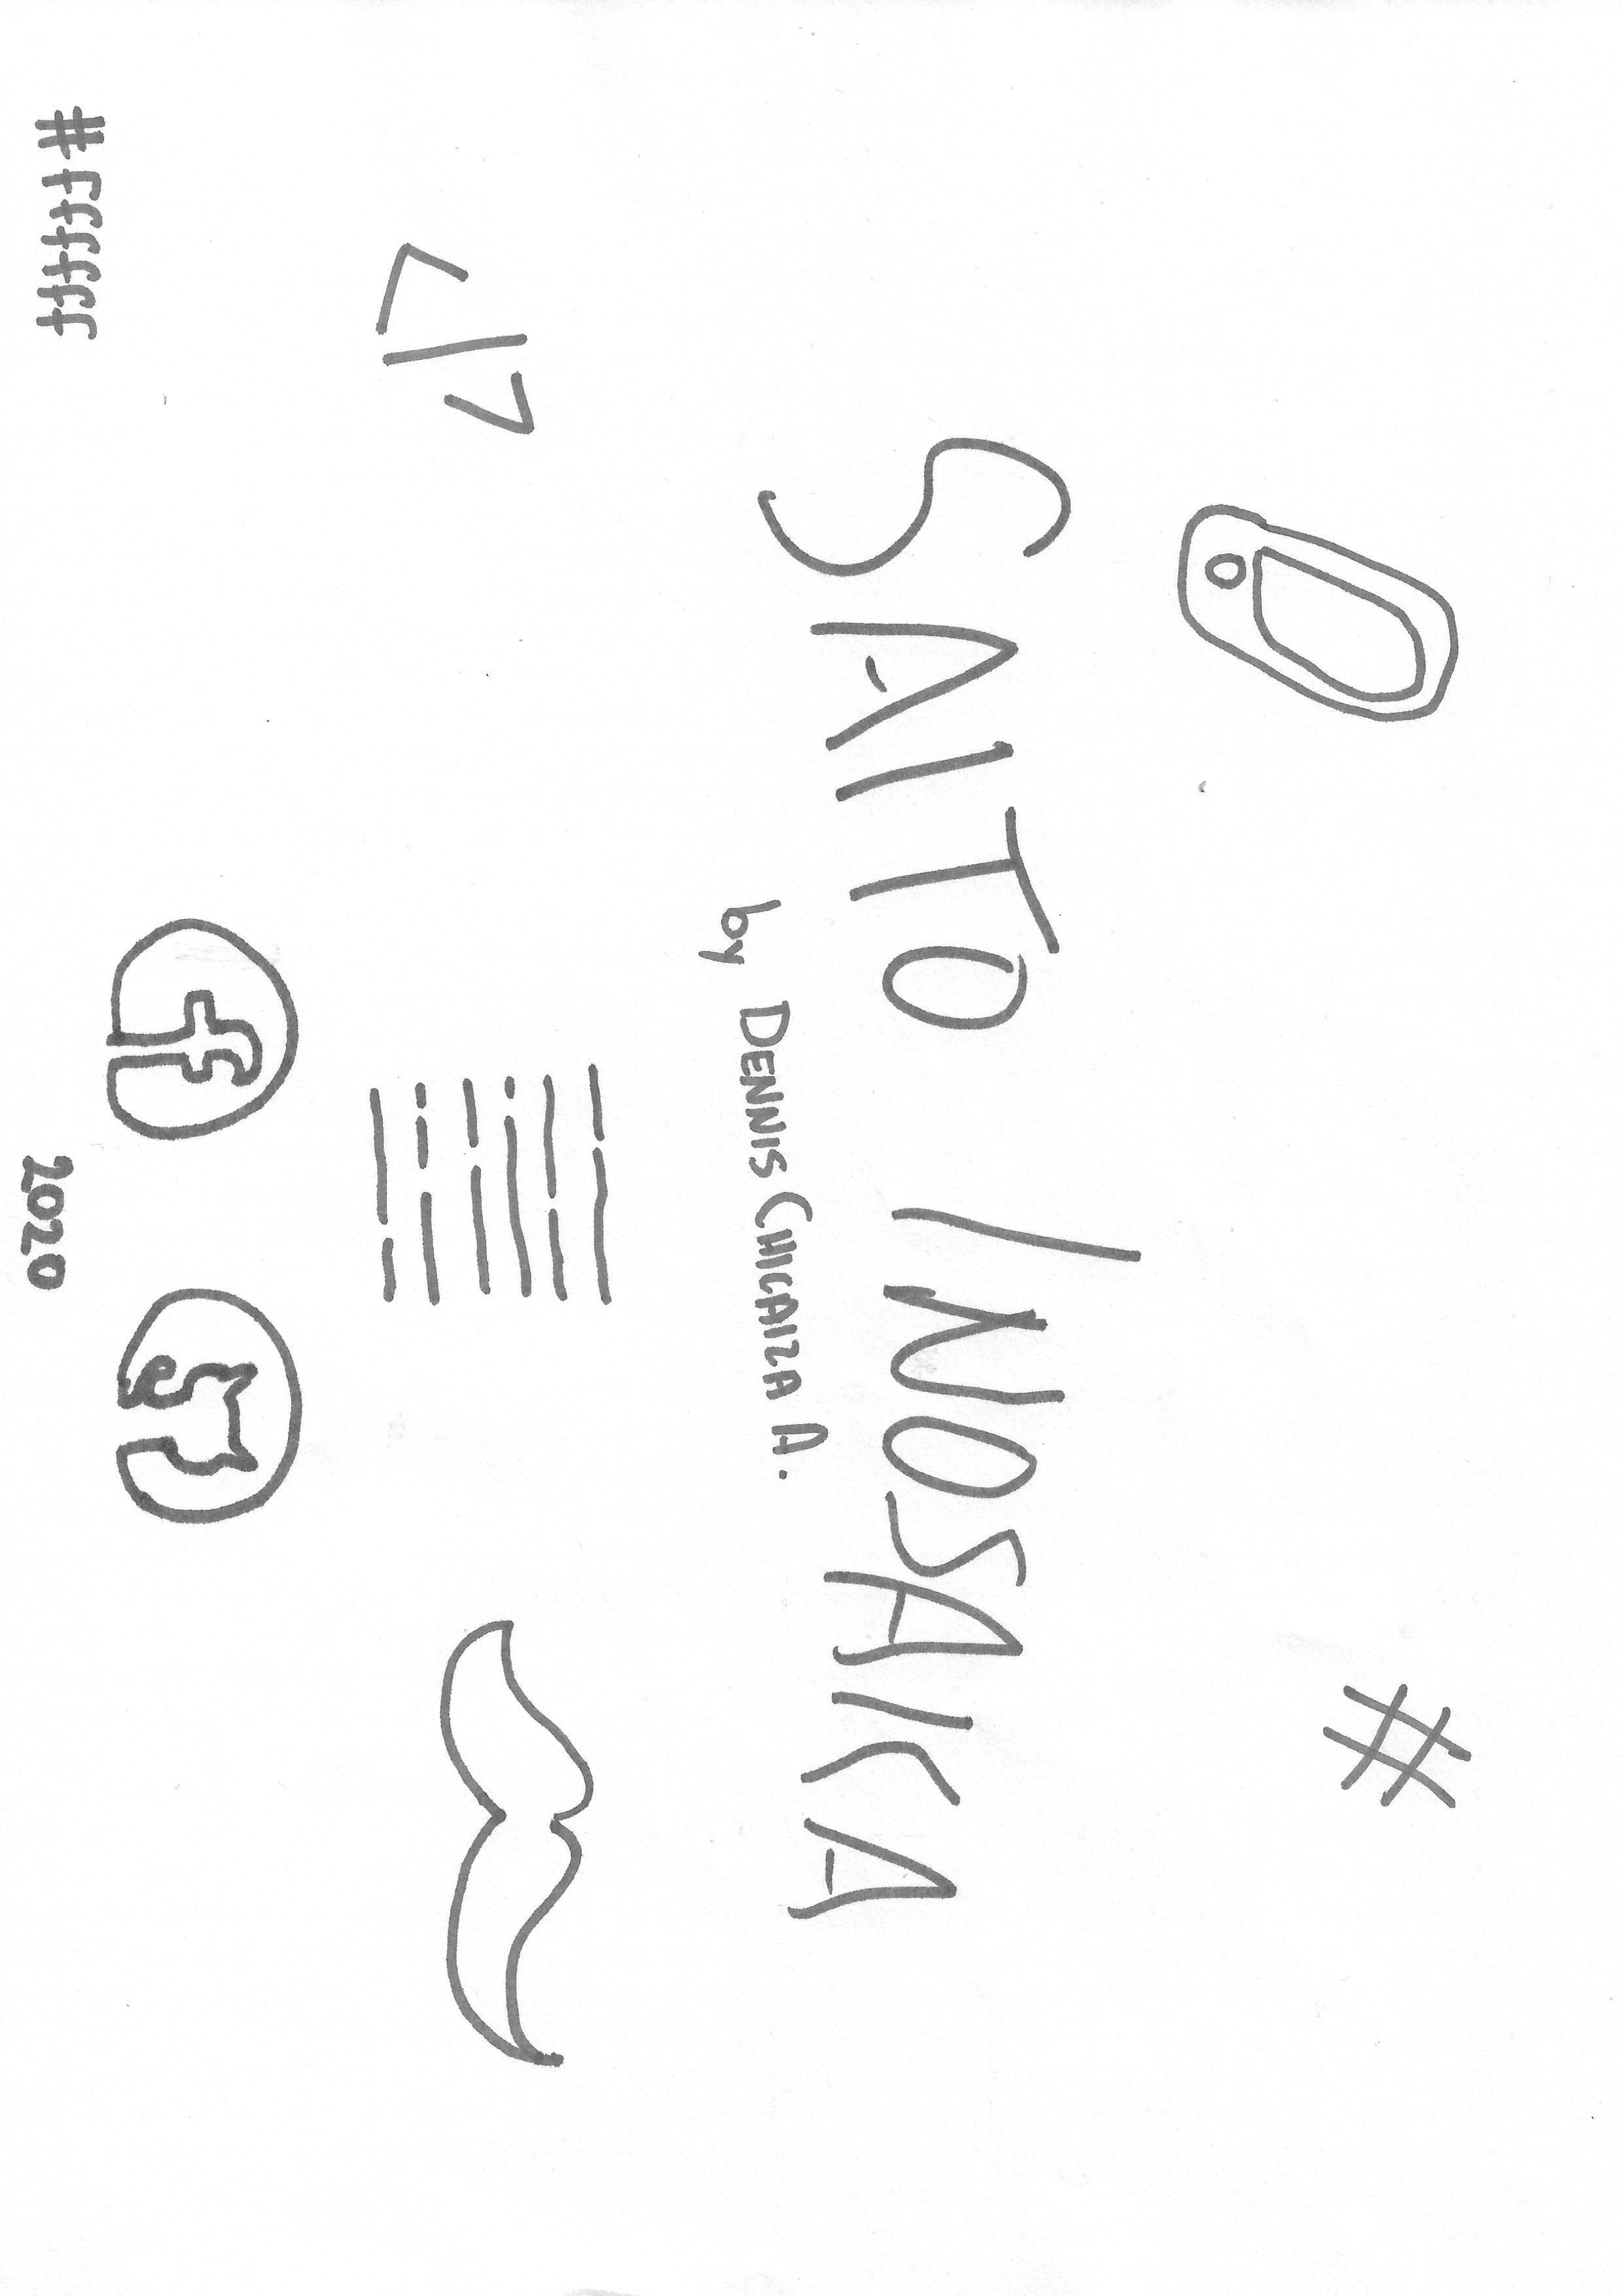 #
SAITO INOSAKA
by DENNIS CHICAIZA A.
</>
f
#ffffff
2020